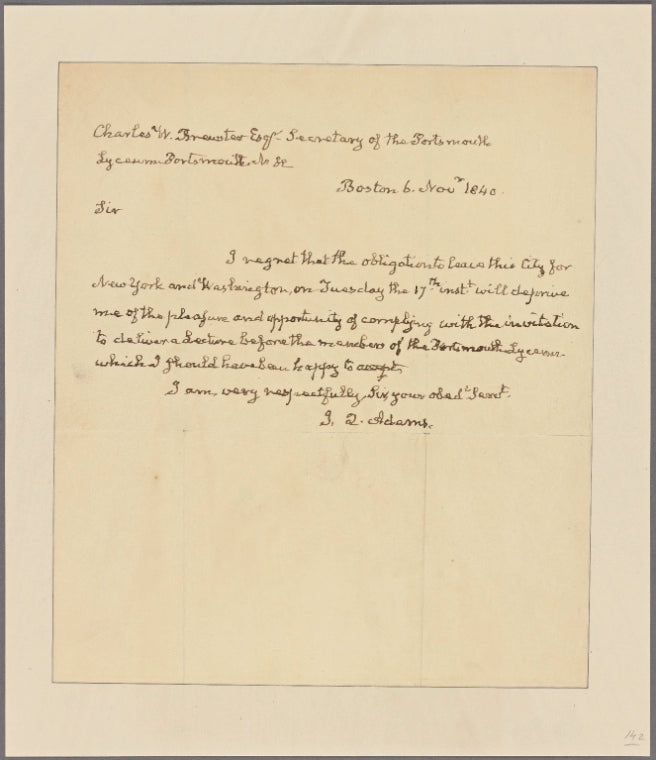 Charles W. Brewster Esqr. Secretary of the Portsmouth
Lyceum Portsmouth N. H.
Boston 6. Novr. 1840.
Sir
I regret that the obligation to leave this City for
New York and Washington, on Tuesday the 17th. instt. will deprive
me of the pleasure and opportunity of complying with the invitation
to deliver a Lecture before the members of the Portsmouth Lyceum
which I should have been happy to accept.
I am, very respectfully, Sir, your obedt. Servt.
J. Q. Adams.
142